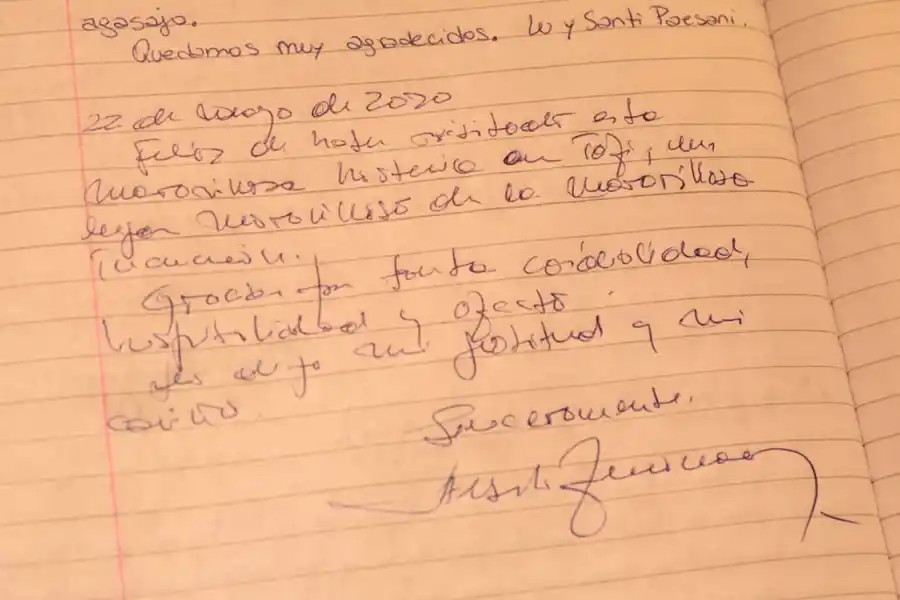 agasajo.
Quedamos muy agradecidos. Lu y Santi Paesani.
22 de marzo de 2020
Feliz de haber visitado esta
maravillosa historia en Tafí, un
lugar maravilloso de la maravillosa
Tucumán.
Gracias por tanta cordialidad,
hospitalidad y afecto.
les dejo mi gratitud y mi
cariño.
Sinceramente.